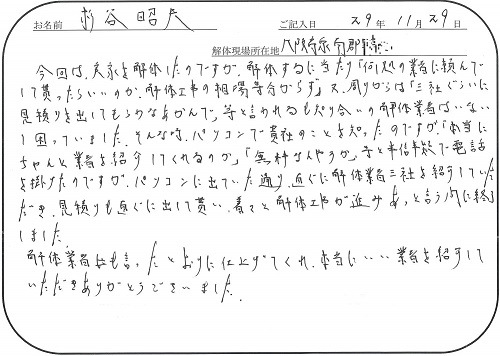 お名前 杉谷 昭夫 ご記入日 29年 11月 29日
解体現場所在地 大阪府泉南郡
今回は、実家を解体したのですが、解体するに当たり「何処の業者に頼んで
貰ったらいいのか、解体工事の相場等分からず」又、周りからは「三社ぐらいに
見積りを出してもらわなあかんで」等と言われるも知り合いの解体業者はいない
し困っていました。そんな時、パソコンで貴社のことを知ったのですが「本当に
ちゃんと業者を紹介してくれるのか」「無料なんやろか」等と半信半疑で電話
を掛けたのですが、パソコンに出ていた通り、直ぐに解体業者三社を紹介していた
だき、見積りも直ぐに出して貰い、着々と解体工事が進みあっと言う間に終了
しました。
解体業者にも言ったとおりに仕上げてくれ、本当にいい業者を紹介して
いただきありがとうございました。